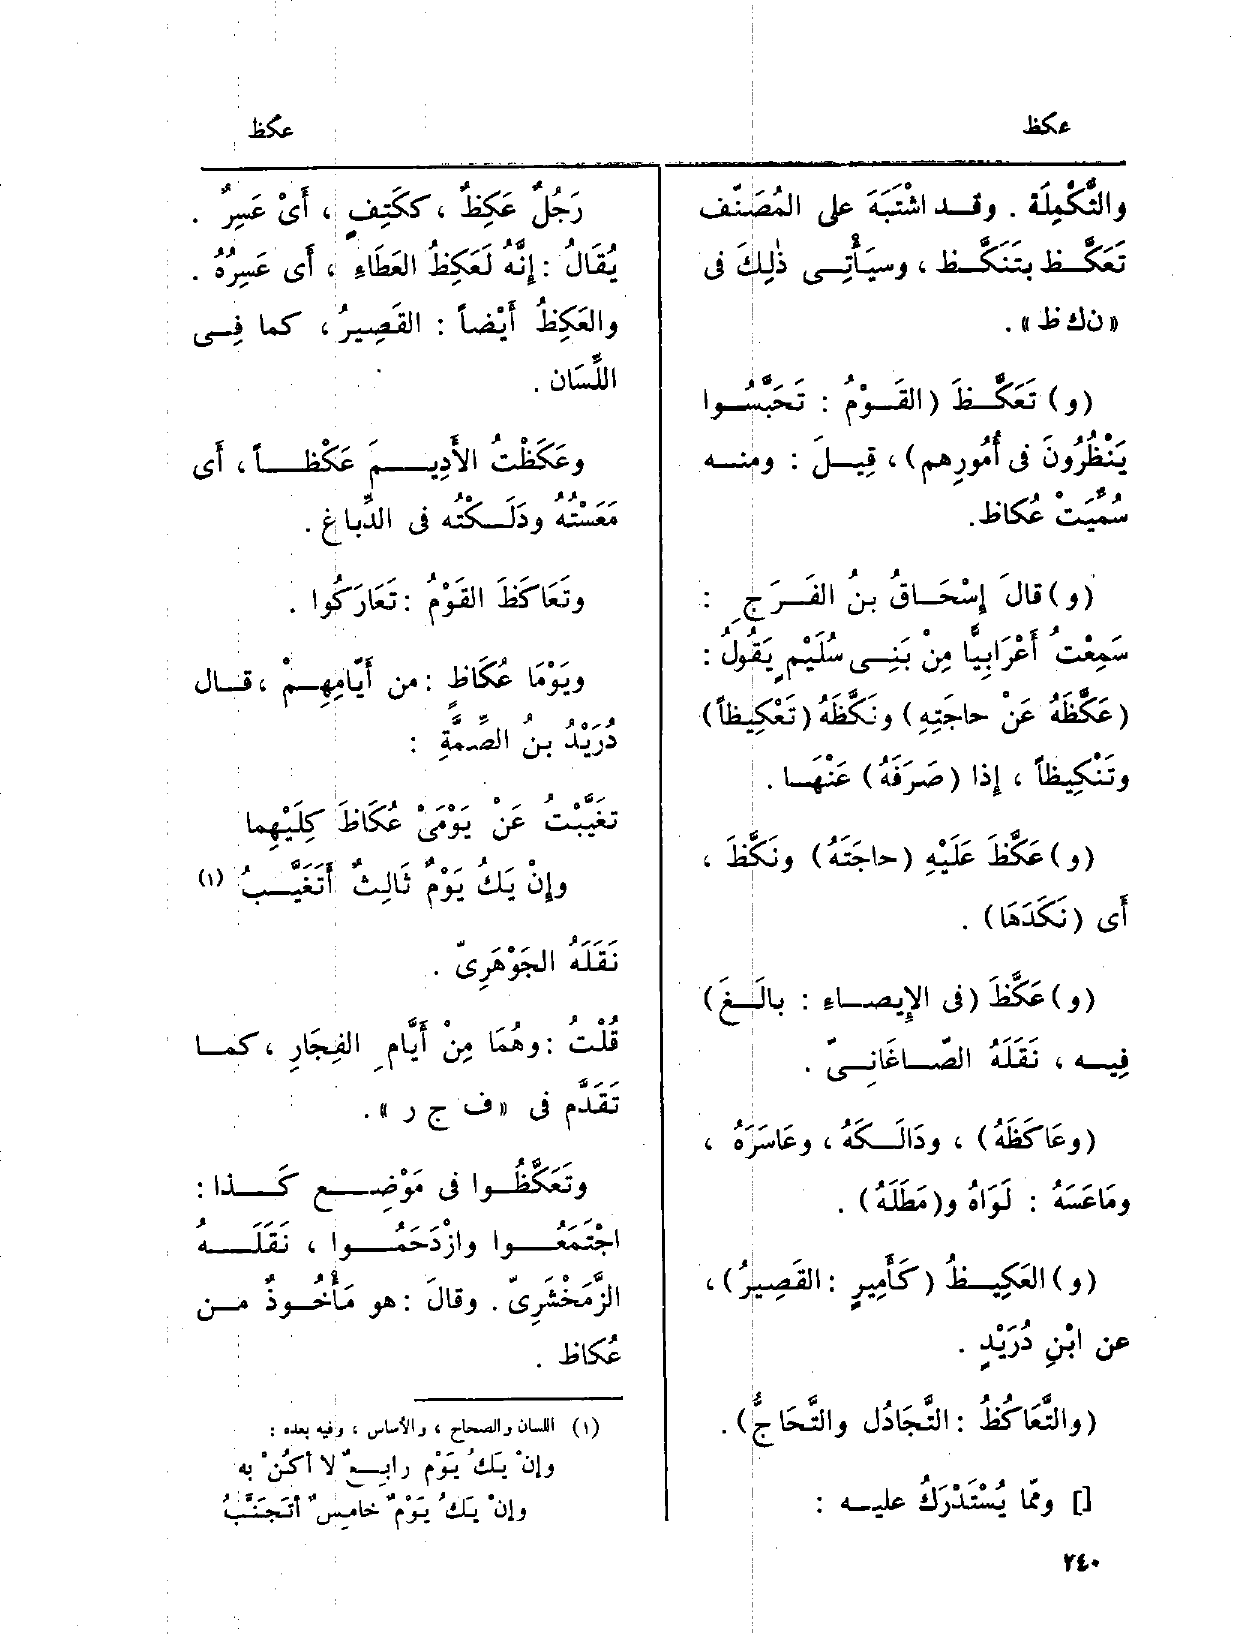 عكظ
عكظ
والتَّكْمِلَة . وقـد اشْتَبَهَ على المُصَنِّف
تَعَكَّـظ بتَنَكَّـظ ، وسيَأْتِـى ذٰلِكَ فى
«نك ظ» .
(و) تَعَكَّـظَ (القَـوْمُ : تَحَبَّسُـوا
يَنْظُرُونَ فى أُمُورِهم) ، قِيـلَ : ومنـه
سُمِّيَتْ عُكاظ.
(و) قالَ إِسْحَـاقُ بنُ الفَـرَجِ :
سَمِعْتُ أَعْرَابِيًّا مِنْ بَنِـى سُلَيْمٍ يَقُولُ :
(عَكَّظَهُ عَنْ حاجَتِهِ) ونَكَّظَهُ (تَعْكِيظاً)
وتَنْكِيظاً ، إِذا (صَرَفَهُ) عَنْهَـا .
(و) عَكَّظَ عَلَيْهِ (حاجَتَهُ) ونَكَّظَ ،
أَى (نَكَدَهَا) .
(و) عَكَّظَ (فى الإِيصـاءِ : بالَـغَ)
فِيـه ، نَقَلَهُ الصّـاغَانِـىّ .
(وعَاكَظَهُ) ، ودَالَـكَهُ ، وعَاسَرَهُ ،
ومَاعَسَهُ : لَوَاهُ و(مَطَلَهُ) .
(و) العَكِيـظُ (كَأَمِيرٍ : القَصِيرُ) ،
عن ابْنِ دُرَيْدٍ .
(والتَّعَاكُظُ : التَّجَادُل والتَّحَاجُّ) .
[] وممّا يُسْتَدْرَكُ عليـه :
رَجُلٌ عَكِظٌ ، ككَتِفٍ ، أَىْ عَسِرٌ .
يُقَالُ : إِنَّهُ لَعَكِظُ العَطَاءِ ، أَى عَسِرُهُ .
والعَكِظُ أَيْضاً : القَصِيرُ ، كما فِـى
اللِّسَان .
وعَكَظْتُ الأَدِيـمَ عَكْظـاً ، أَى
مَعَسْتُهُ ودَلَـكْتُه فى الدِّباغِ .
وتَعَاكَظَ القَوْمُ : تَعَارَكُوا .
ويَوْمَا عُكَاظٍ : من أَيّامِهِـمْ ، قـال
دُرَيْدُ بن الصِّمَّةِ :
تغَيَّبْتُ عَنْ يَوْمَىْ عُكَاظَ كِلَيْهِما
وإِنْ يَكُ يَوْمٌ ثَالِثٌ أَتَغَيَّـبُ (١)
نَقَلَهُ الجَوْهَرِىّ .
قُلْتُ : وهُمَا مِنْ أَيَّامِ الفِجَارِ ، كمـا
تَقَدَّم فى «ف ج ر» .
وتَعَكَّظُـوا فى مَوْضِـع كَـذا :
اجْتَمَعُـوا وازْدَحَمُـوا ، نَقَلَـهُ
الزَّمَخْشَرِىّ . وقالَ : هو مَأْخُـوذٌ مـن
عُكاظ .
(١) اللسان والصحاح ، والأساس ، وفيه بعده :
وإنْ يَكُ يَوْم رابِـعٌ لا أكُنْ به
وإنْ يَكُ يَوْمٌ خامِسٌ أتَجَنَّبُ
٢٤٠